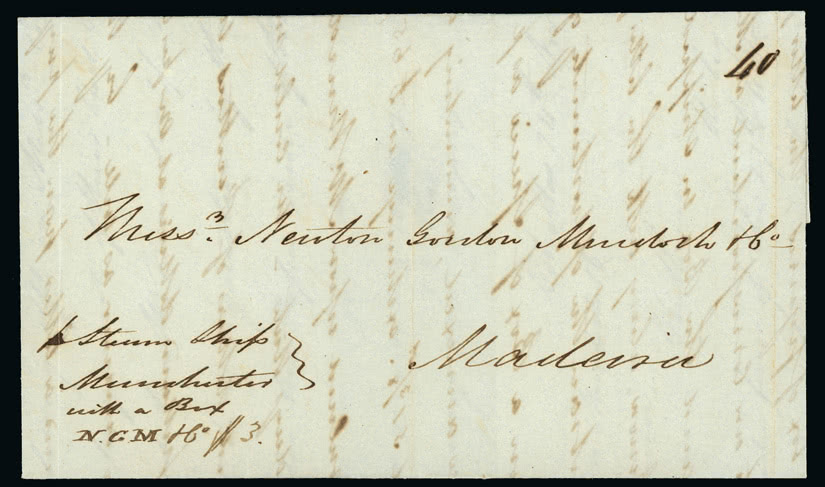 40
Messrs. Newton Gordon Murdoch & Co
Madeira
p Steam Ship
Manchester
with a Box
N.G.M & Co # 3.